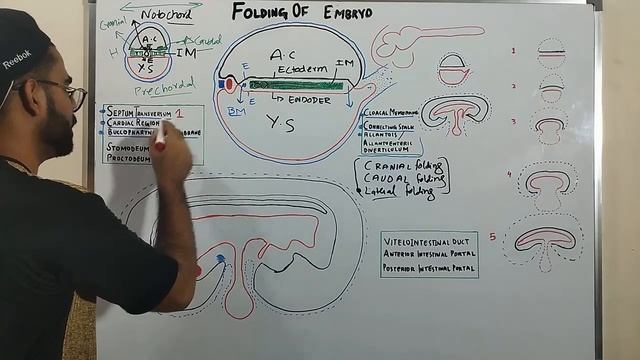 FOLDING OF EMBRYO
Notochord
Cranial
Caudal
A.C
H
IM
E
Y.S
Prechordal
SEPTUM TRANSVERSUM 1
CARDIAC REGION
BUCCOPHARYN MBRANE
STOMODEUM
PROCTODEUM
A.C
IM
ECTODERM
E
E
BM
ENDODER
Y.S
CLOACAL MEMBRANE
CONNECTING STALK
ALLANTOIS/
ALLANTOENTERIC
DIVERTICULUM
CRANIAL folding
CAUDAL folding
Lateral folding
1
2
3
4
5
VITELOINTESTINAL DUCT
ANTERIOR INTESTINAL PORTAL
POSTERIOR INTESTINAL PORTAL
Reebok